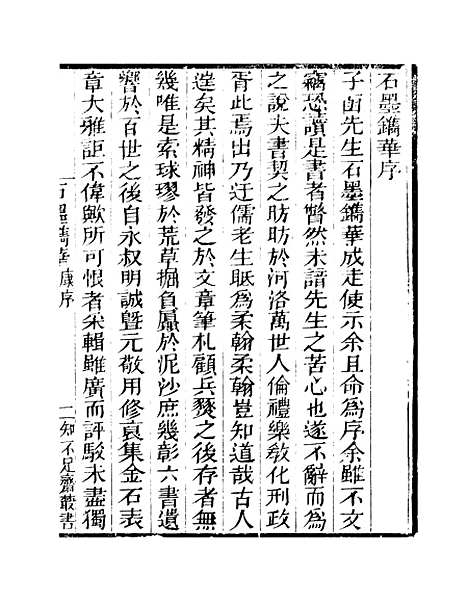 石墨鐫華序
子函先生石墨鐫華成走使示余且命爲序余雖不文
竊恐讀是書者瞥然未諳先生之苦心也遂不辭而爲
之說夫書契之昉昉於河洛萬世人倫禮樂敎化刑政
胥此焉出乃迂儒老生眡爲柔翰柔翰豈知道哉古人
逹矣其精神皆發之於文章筆札顧兵燹之後存者無
幾唯是索球璆於荒草掘負屭於泥沙庶幾彰六書遺
響於百世之後自永叔明誠曁元敬用修裒集金石表
章大雅詎不偉歟所可恨者采輯雖廣而評駁未盡獨
石墨鐫華序 一 知不足齋叢書